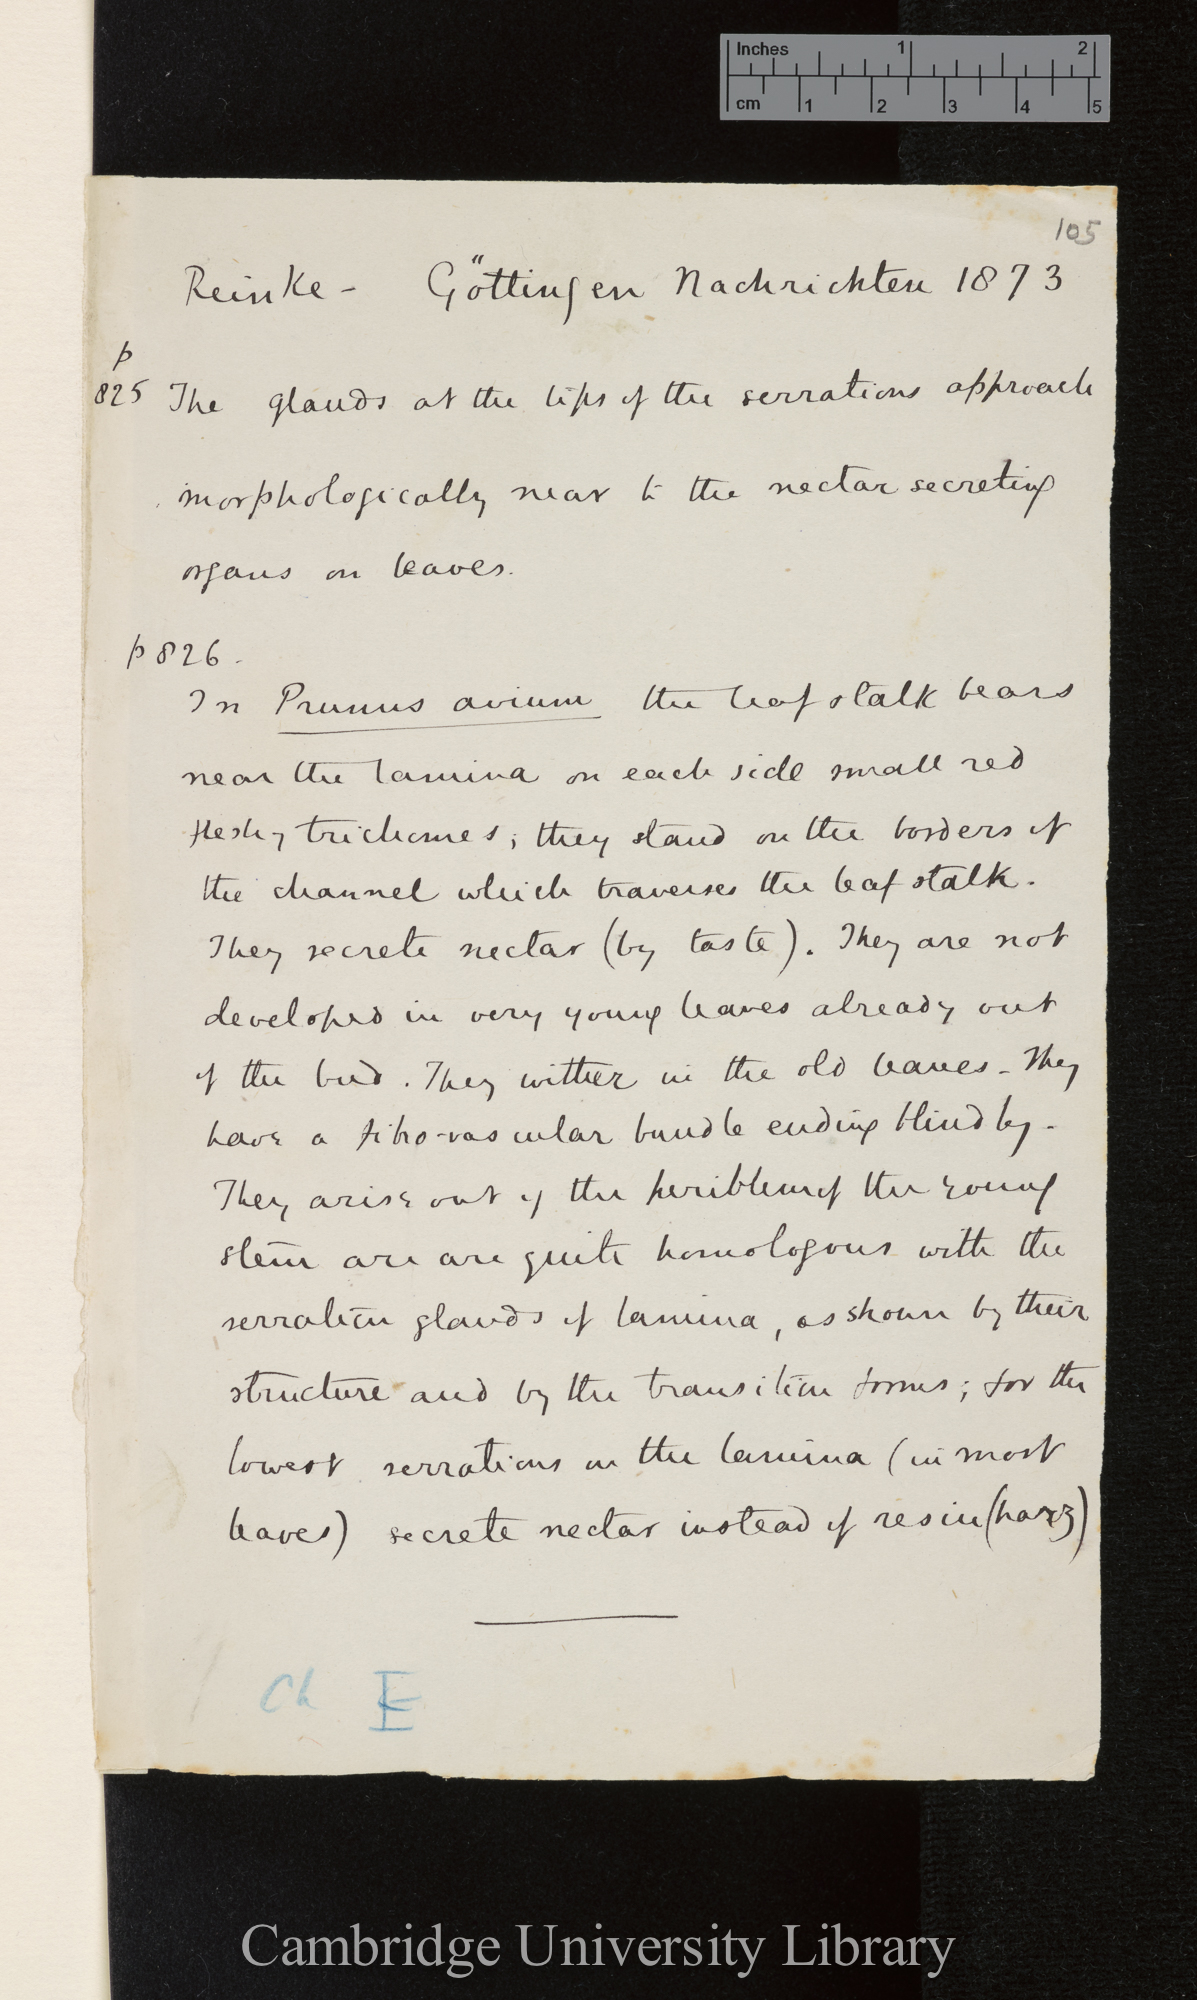 Inches 1 2
cm 1 2 3 4 5
105
Reinke - Göttingen Nachrichten 1873
p
825 The glands at the tips of the serrations approach
morphologically near to the nectar secreting
organs on leaves.
p 826.
In Prunus avium the leaf stalk bears
near the lamina on each side small red
fleshy trichomes; they stand on the borders of
the channel which traverses the leaf stalk.
They secrete nectar (by taste). They are not
developed in very young leaves already out
of the bud. They wither in the old leaves - They
have a fibro-vascular bundle ending blindly -
They arise out of the periblem of the young
stem are are quite homologous with the
serration glands of lamina, as shown by their
structure and by the transition forms; for the
lowest serrations on the lamina (in most
leaves) secrete nectar instead of resin (harz)
Ch E
Cambridge University Library